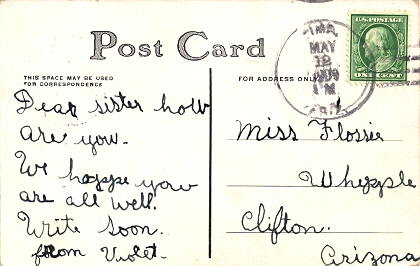 Post Card
THIS SPACE MAY BE USED
FOR CORRESPONDENCE
FOR ADDRESS ONLY
PIMA,
MAY
12
1909
M
ARIZ.
U.S. POSTAGE
ONE CENT
Dear sister how
are you.
We hoppe you
are all well.
Write soon.
from Violet.
Miss Flossie
Whipple
Clifton.
Arizona